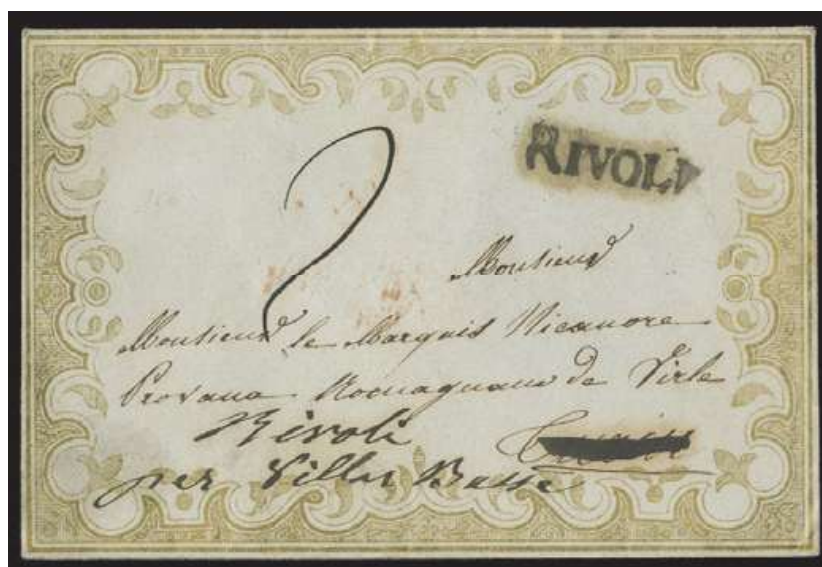 RIVOLI
2
Monsieur
Monsieur le Marquis Nicanore
Provana Romagnano de Virle
Rivoli
per Villar Basse